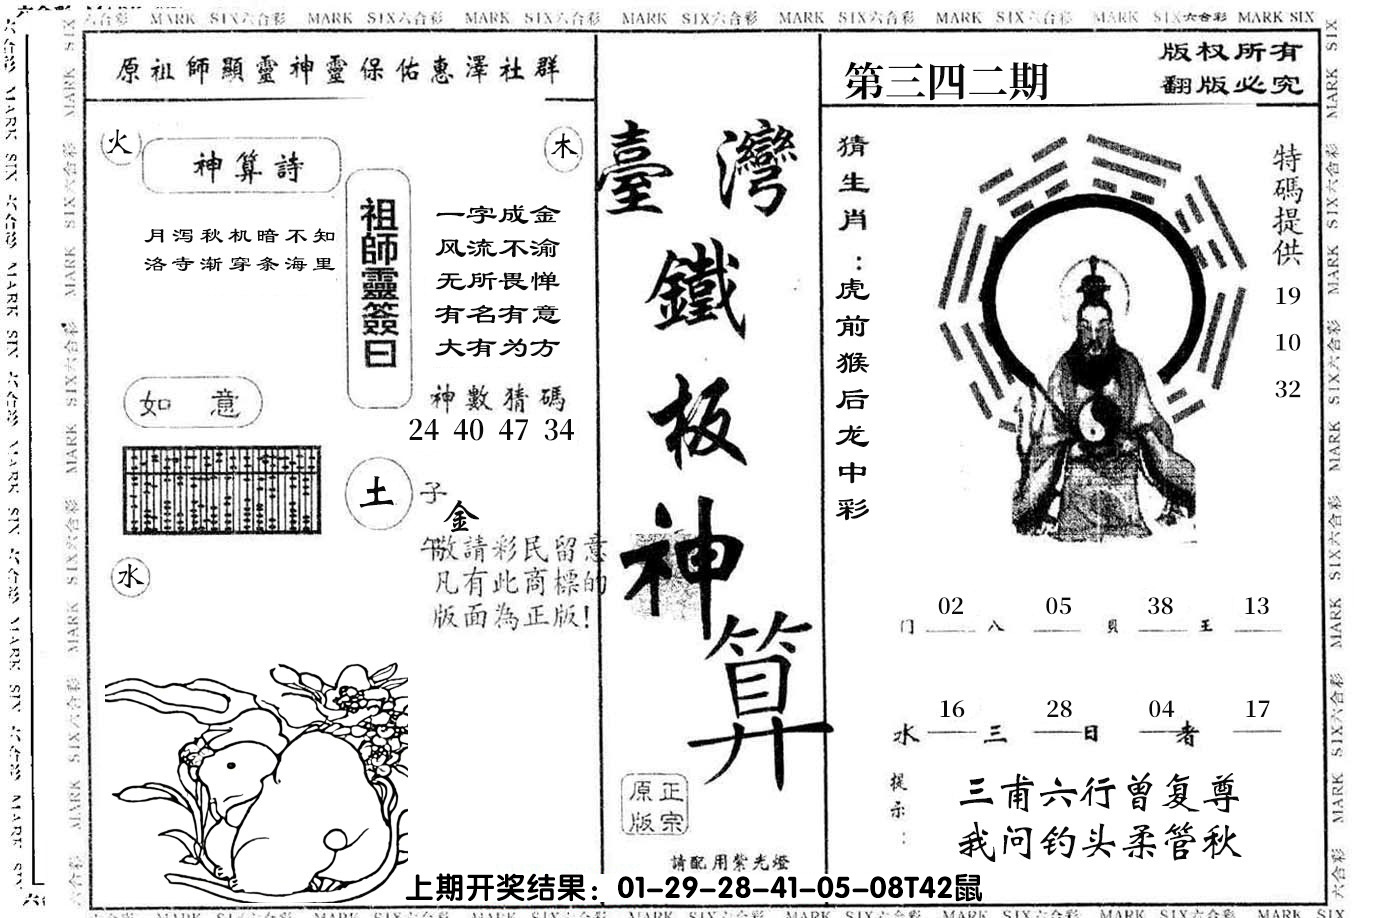 MARK SIX六合彩 MARK SIX六合彩 MARK SIX六合彩 MARK SIX六合彩 MARK SIX六合彩 MARK SIX六合彩 MARK SIX六合彩 MARK SIX
原祖師顯靈神靈保佑惠澤社群
第三四二期
版权所有
翻版必究
火
神算詩
木
月泻秋机暗不知
洛寺渐穿条海里
祖師靈簽曰
一字成金
风流不渝
无所畏惮
有名有意
大有为方
神數猜碼
24 40 47 34
如 意
土
子
金
午
敬請彩民留意
凡有此商標的
版面為正版!
水
臺灣
鐵
板
神
算
正宗
原版
請配用紫光燈
猜生肖:虎前猴后龙中彩
特碼提供
19
10
32
门 02 八 05 貝 38 王 13
水 16 三 28 日 04 者 17
提示:
三甫六行曾复尊
我问钓头柔管秋
上期开奖结果：01-29-28-41-05-08T42鼠